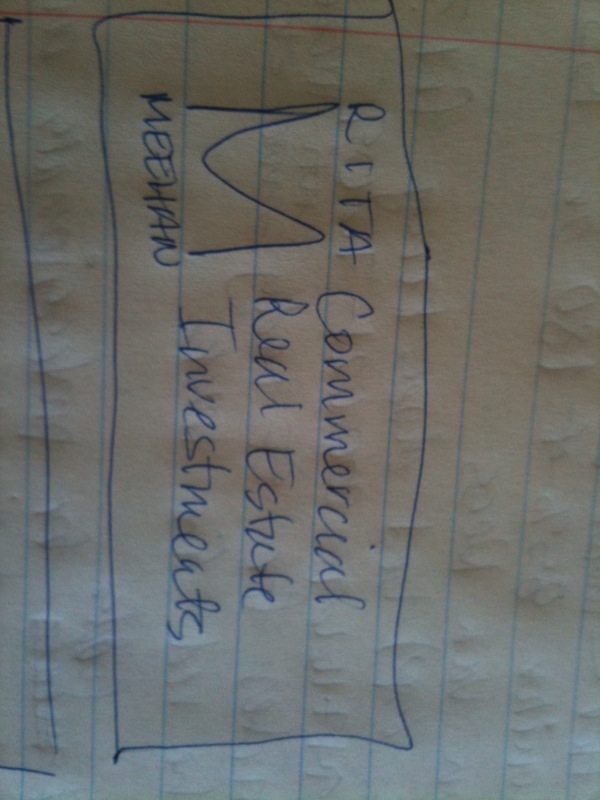 RITA
M
MEEHAN
Commercial
Real Estate
Investments